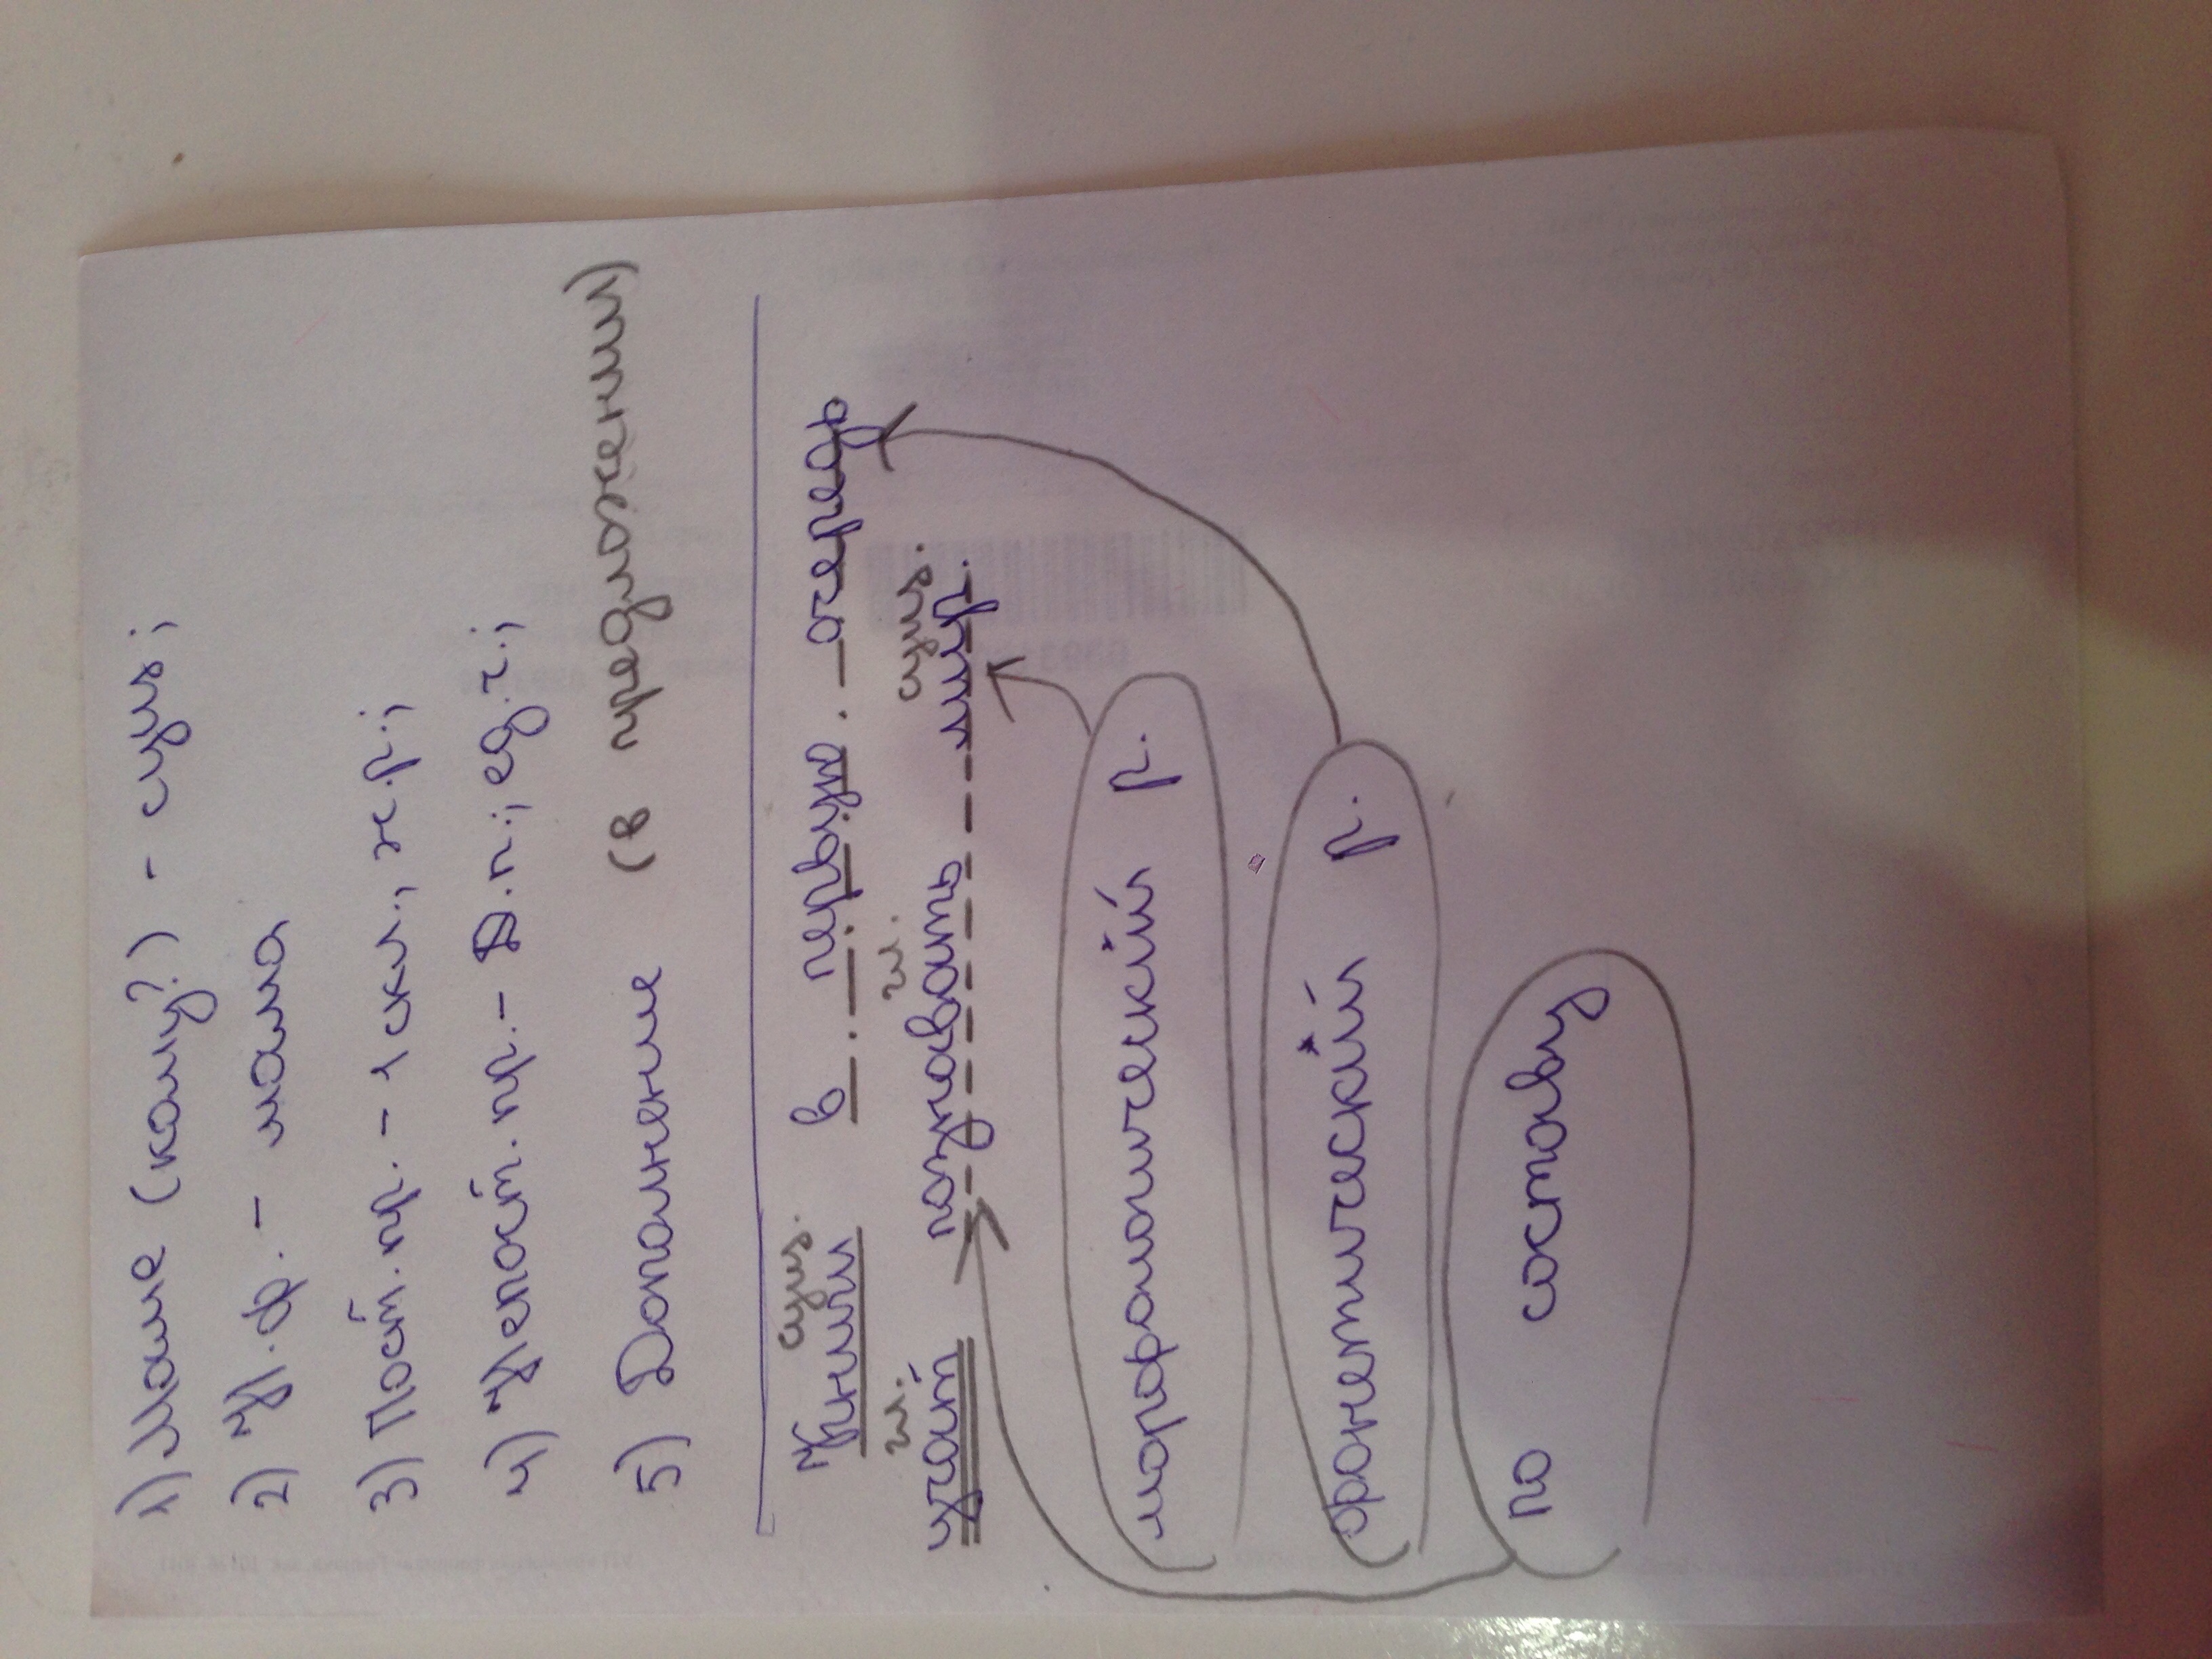 1) Маше (кому?) - сущ.;
2) Н.ф. - мама
3) Пост.пр. - 1 скл., ж.р.;
4) Непост.пр. - Д.п.; ед.ч.;
5) Дополнение (в предложении)
сущ.
Книги в перву . - очередь
гл. гл. сущ.
учат познавать мир.
морфологический р.
фонетический р.
по составу